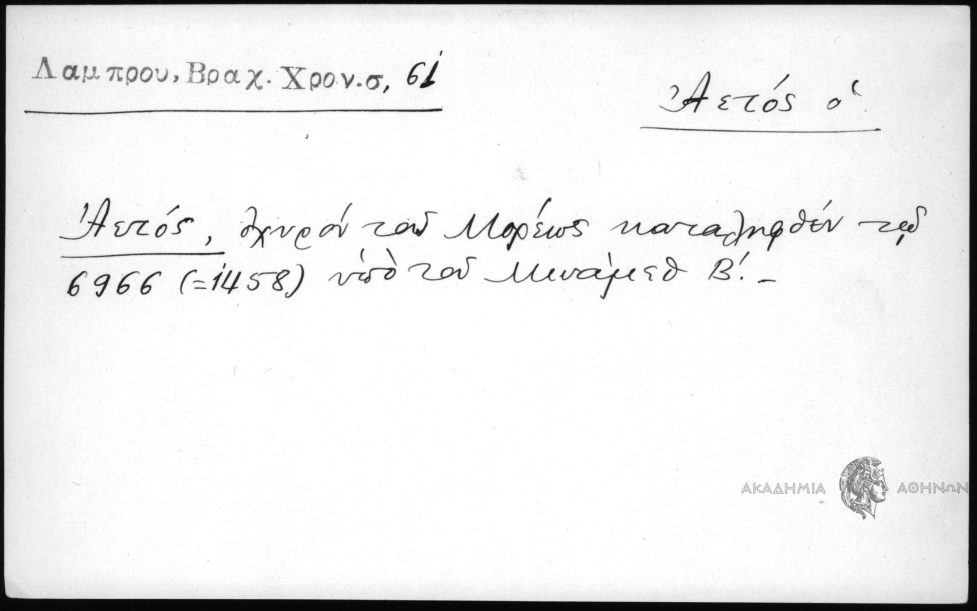 Λαμπρου, Βραχ. Χρον. σ, 61
Ἀετός ὁ
Ἀετός, ὀχυρόν τοῦ Μορέως καταληφθέν τῷ
6966 (=1458) ὑπὸ τοῦ Μωάμεθ Β'. –
ΑΚΑΔΗΜΙΑ ΑΘΗΝΩΝ